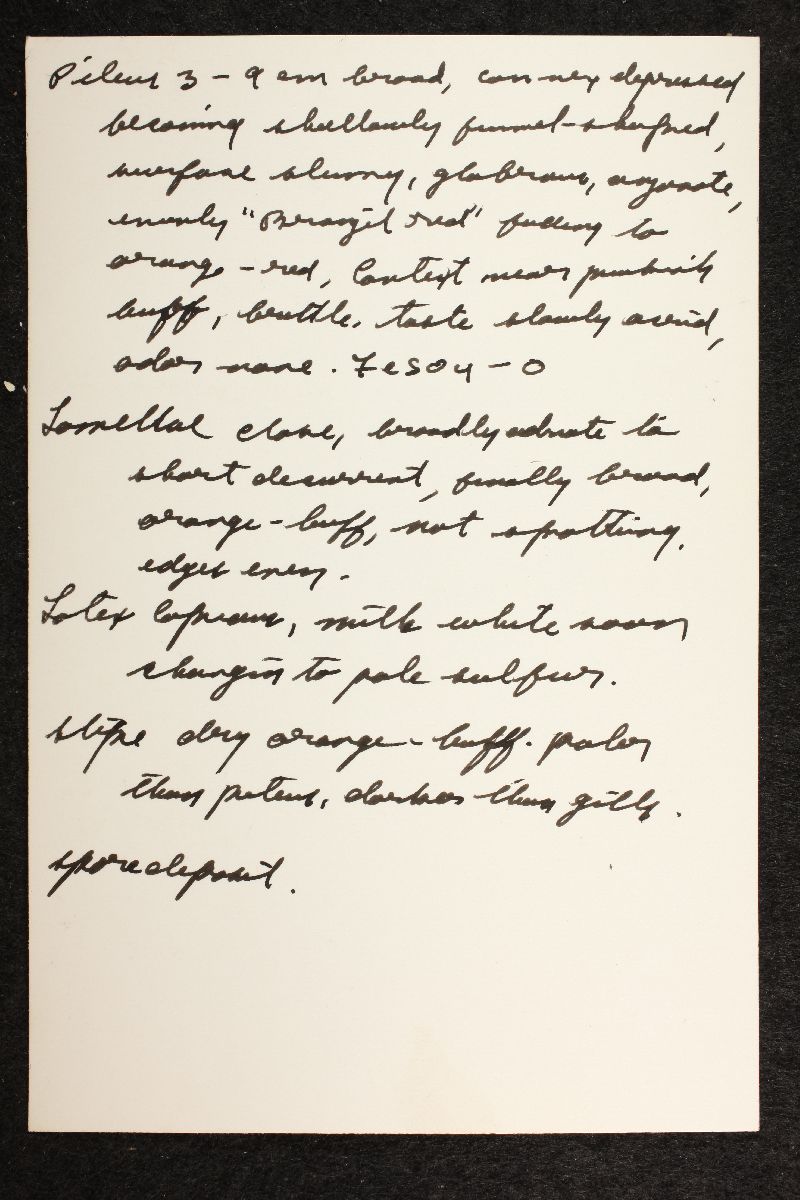 Pileus 3 - 9 cm broad, convex depressed
becoming shallowly funnel-shaped,
surface slimy, glabrous, azonate,
evenly "Brazil red" fading to
orange-red, Context near pinkish
buff, brittle, taste slowly acrid,
odor none. FeSO4 - 0
Lamellae close, broadly adnate to
short decurrent, finally broad,
orange-buff, not spotting,
edges even.
Latex copious, milk white soon
changin to pale sulfur.
stipe dry orange-buff. paler
than pileus, darker than gills.
spore deposit.